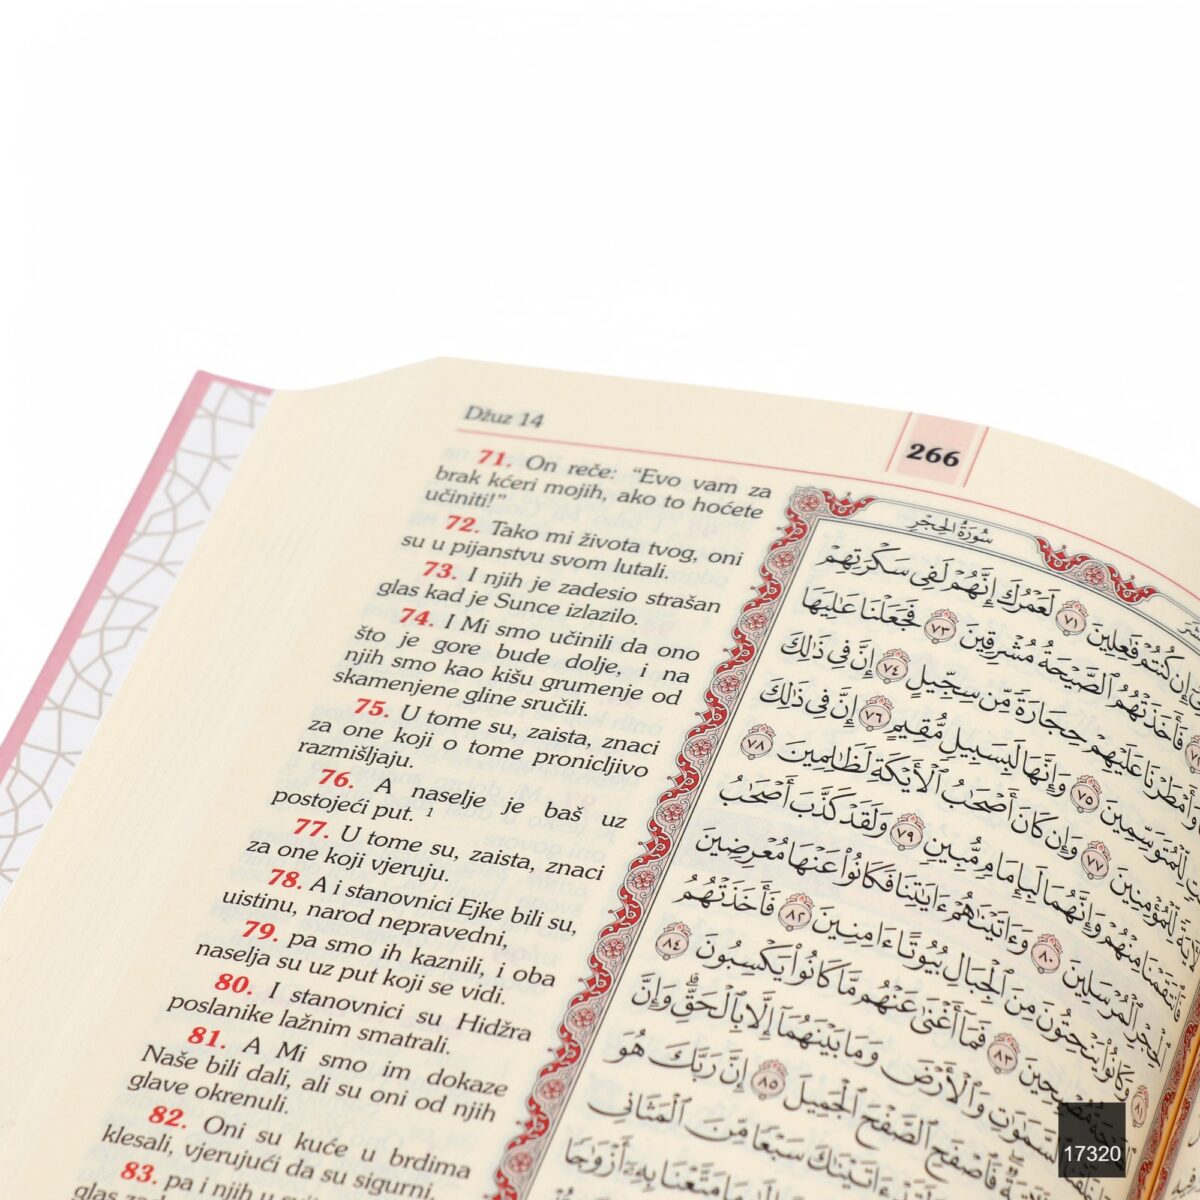 Džuz 14
266
71. On reče: “Evo vam za
brak kćeri mojih, ako to hoćete
učiniti!”
72. Tako mi života tvog, oni
su u pijanstvu svom lutali.
73. I njih je zadesio strašan
glas kad je Sunce izlazilo.
74. I Mi smo učinili da ono
što je gore bude dolje, i na
njih smo kao kišu grumenje od
skamenjene gline sručili.
75. U tome su, zaista, znaci
za one koji o tome pronicljivo
razmišljaju.
76. A naselje je baš uz
postojeći put. 1
77. U tome su, zaista, znaci
za one koji vjeruju.
78. A i stanovnici Ejke bili su,
uistinu, narod nepravedni,
79. pa smo ih kaznili, i oba
naselja su uz put koji se vidi.
80. I stanovnici su Hidžra
poslanike lažnim smatrali.
81. A Mi smo im dokaze
Naše bili dali, ali su oni od njih
glave okrenuli.
82. Oni su kuće u brdima
klesali, vjerujući da su sigurni,
83. pa i njih u
glas
سُورَةُ الحِجْرِ
إِن كُنتُمْ فَٰعِلِينَ ٧١ لَعَمْرُكَ إِنَّهُمْ لَفِى سَكْرَتِهِمْ
فَأَخَذَتْهُمُ ٱلصَّيْحَةُ مُشْرِقِينَ ٧٣ فَجَعَلْنَا عَٰلِيَهَا
وَأَمْطَرْنَا عَلَيْهِمْ حِجَارَةً مِّن سِجِّيلٍ ٧٤ إِنَّ فِى ذَٰلِكَ
لِّلْمُتَوَسِّمِينَ ٧٥ وَإِنَّهَا لَبِسَبِيلٍ مُّقِيمٍ ٧٦ إِنَّ فِى ذَٰلِكَ
لِّلْمُؤْمِنِينَ ٧٧ وَإِن كَانَ أَصْحَٰبُ ٱلْأَيْكَةِ لَظَٰلِمِينَ ٧٨
مِنْهُمْ وَإِنَّهُمَا لَبِإِمَامٍ مُّبِينٍ ٧٩ وَلَقَدْ كَذَّبَ أَصْحَٰبُ
ٱلْمُرْسَلِينَ ٨٠ وَءَاتَيْنَٰهُمْ ءَايَٰتِنَا فَكَانُوا۟ عَنْهَا مُعْرِضِينَ
وَكَانُوا۟ يَنْحِتُونَ مِنَ ٱلْجِبَالِ بُيُوتًا ءَامِنِينَ ٨٢ فَأَخَذَتْهُمُ
٨٣ فَمَآ أَغْنَىٰ عَنْهُم مَّا كَانُوا۟ يَكْسِبُونَ ٨٤
وَٱلْأَرْضَ وَمَا بَيْنَهُمَآ إِلَّا بِٱلْحَقِّ وَإِنَّ
فَٱصْفَحِ ٱلصَّفْحَ ٱلْجَمِيلَ ٨٥ إِنَّ رَبَّكَ هُوَ
سَبْعًا مِّنَ ٱلْمَثَانِى
مَا مَتَّعْنَا بِهِۦٓ أَزْوَٰجًا
17320